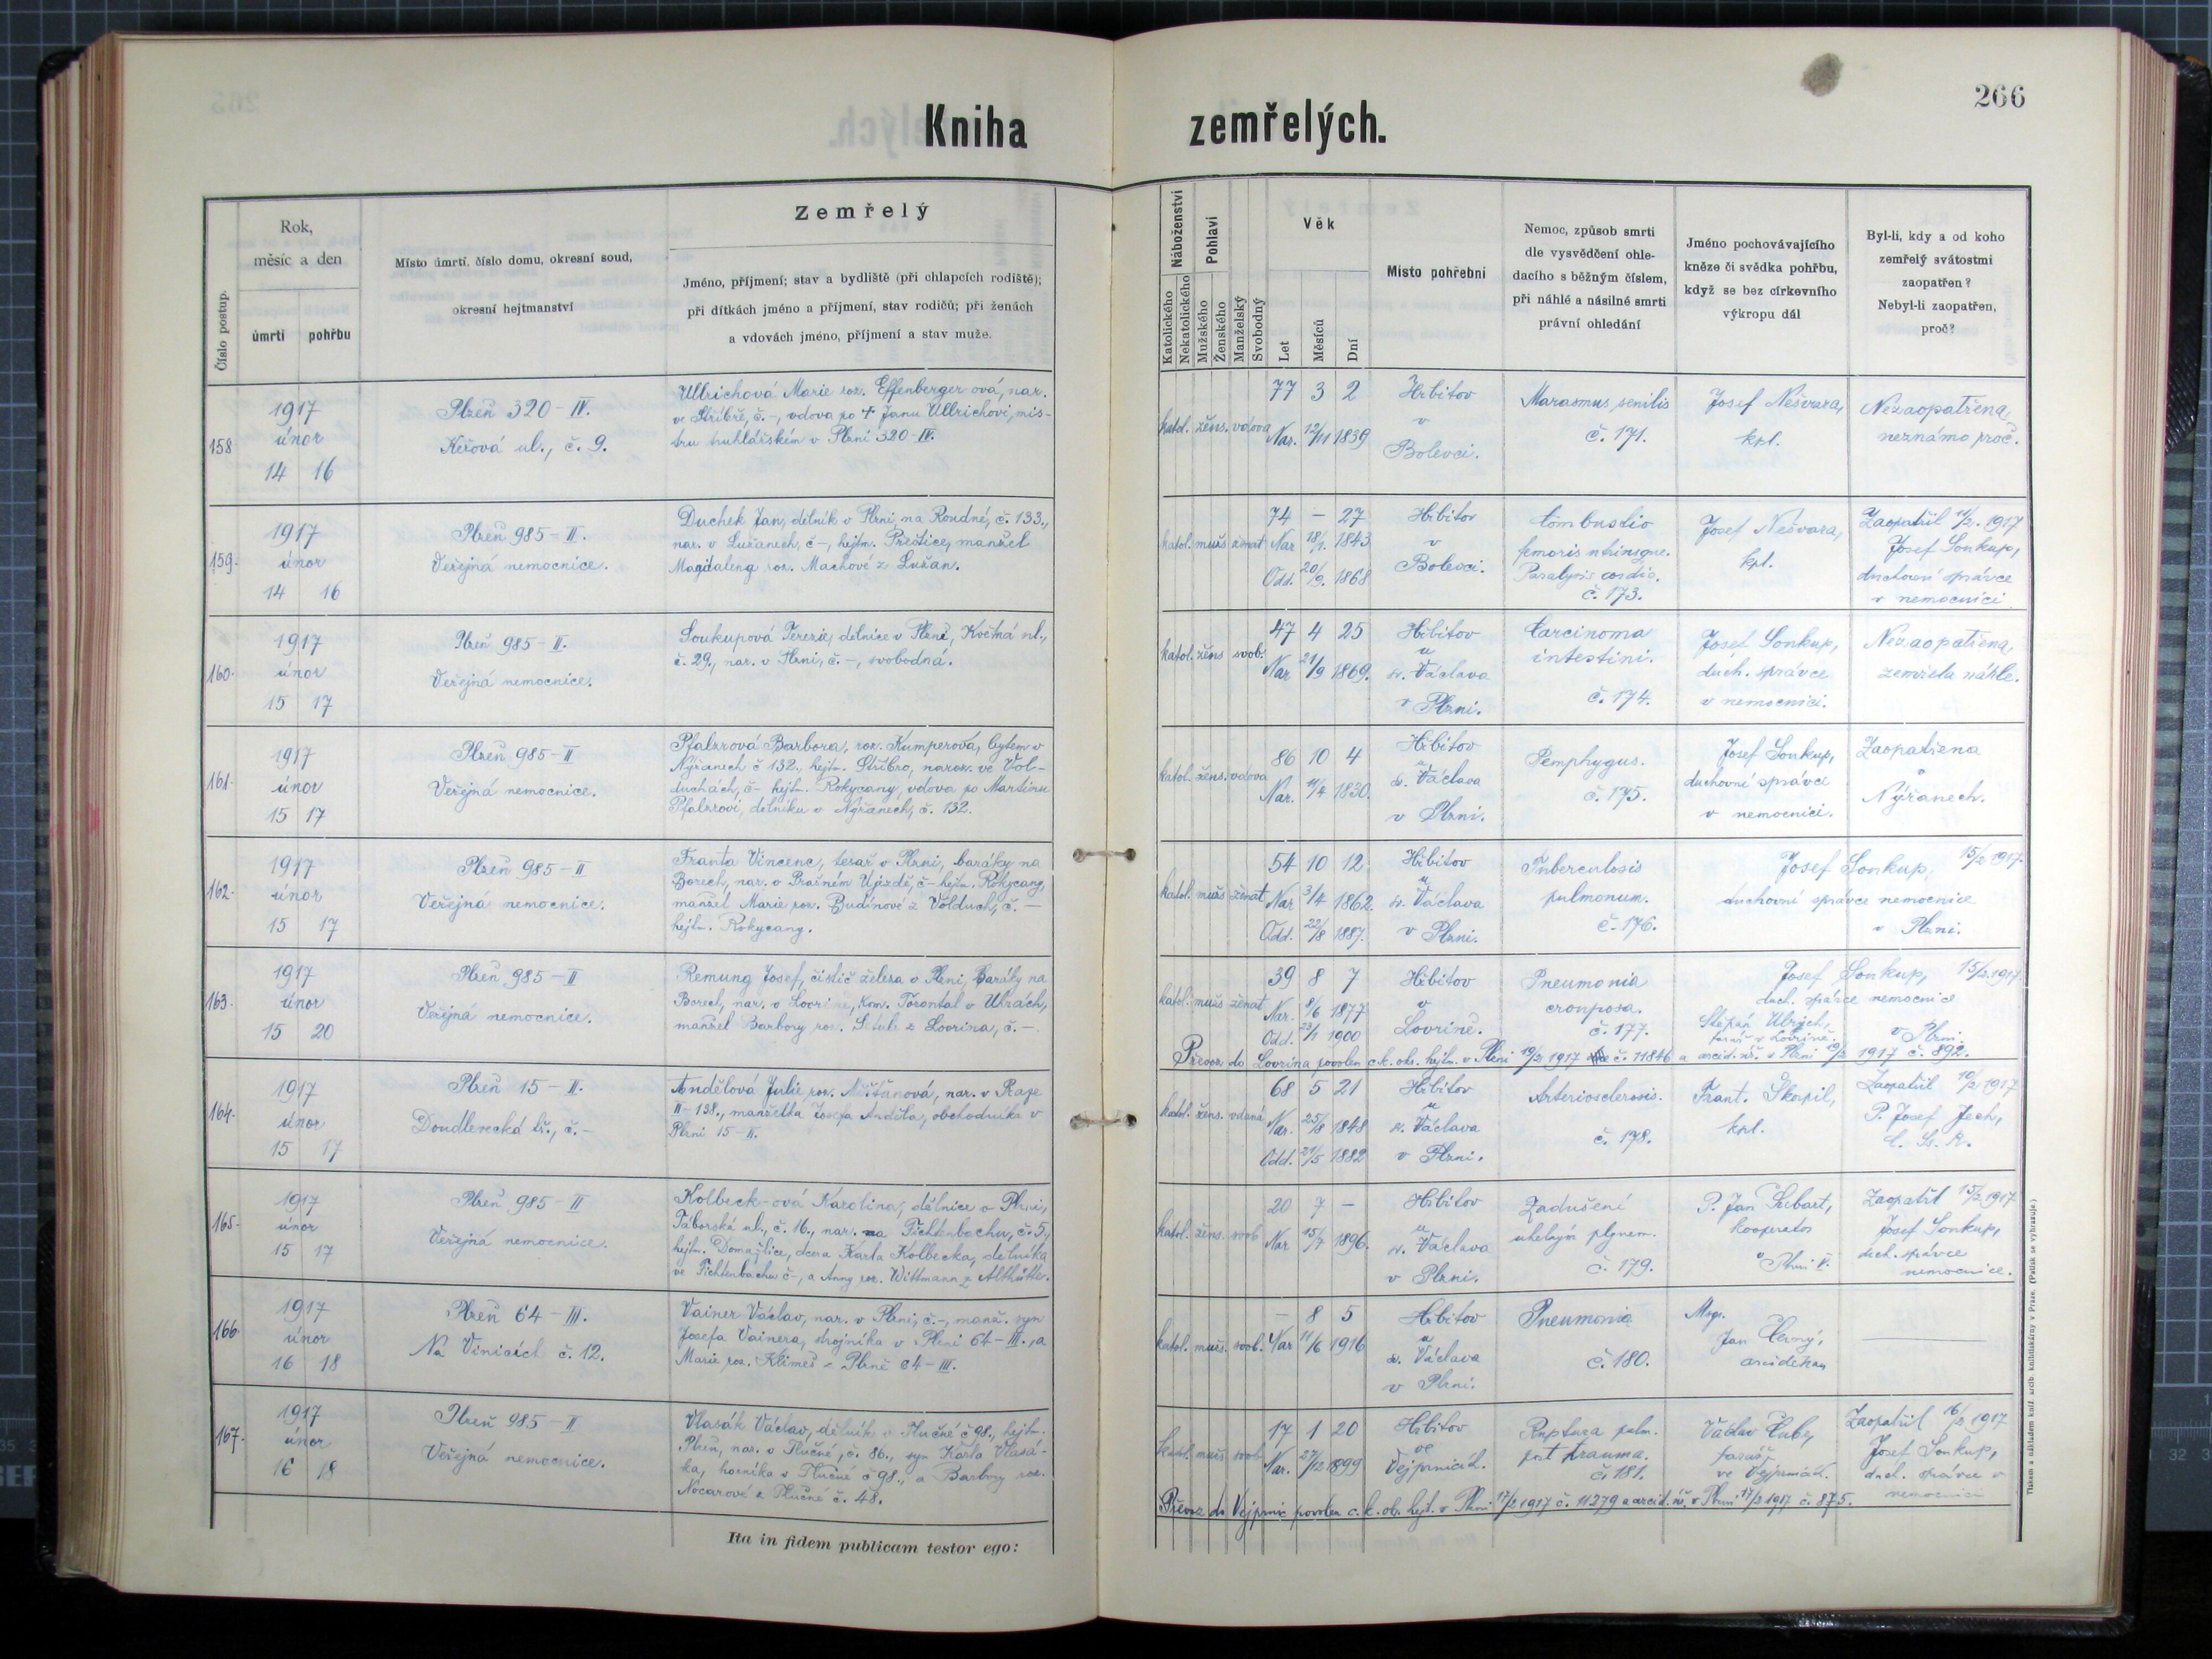 266
Kniha zemřelých.
Číslo postup.
Rok,
měsíc a den
úmrtí
pohřbu
Místo úmrtí, číslo domu, okresní soud,
okresní hejtmanství
Zemřelý
Jméno, příjmení; stav a bydliště (při chlapcích rodiště);
při dítkách jméno a příjmení, stav rodičů; při ženách
a vdovách jméno, příjmení a stav muže.
Náboženství
Katolického
Nekatolického
Pohlaví
Mužského
Ženského
Manželský
Svobodný
Věk
Let
Měsíců
Dní
Místo pohřební
Nemoc, způsob smrti
dle vysvědčení ohle-
dacího s běžným číslem,
při náhlé a násilné smrti
právní ohledání
Jméno pochovávajícího
kněze či svědka pohřbu,
když se bez církevního
výkropu dál
Byl-li, kdy a od koho
zemřelý svátostmi
zaopatřen?
Nebyl-li zaopatřen,
proč?
158
1917
únor
14 16
Plzeň 320-IV.
Keřová ul., č. 9.
Ullrichová Marie roz. Effenberger ová, nar.
ve Stříbře, č.-, vdova po + Janu Ullrichovi, mis-
tru truhlářském v Plzni 320-IV.
katol. žens. vdova
77 3 2
Nar. 12/11 1839
Hřbitov
v
Bolevci.
Marasmus senilis
č. 171.
Josef Nešvara,
kpl.
Nezaopatřena,
neznámo proč.
159.
1917
únor
14 16
Plzeň 985-II.
Veřejná nemocnice.
Duchek Jan, dělník v Plzni, na Roudné, č. 133.,
nar. v Lužanech, č-, hejtm. Přeštice, manžel
Magdaleny roz. Machové z Lužan.
katol. muž. ženat
74 - 27
Nar 18/1. 1843
Odd. 20/9. 1868
Hřbitov
v
Bolevci.
Combustio
femoris utriusque.
Paralysis cordis.
č. 173.
Josef Nešvara,
kpl.
Zaopatřil 11/2. 1917
Josef Soukup,
duchovní správce
v nemocnici
160.
1917
únor
15 17
Plzeň 985-II.
Veřejná nemocnice.
Soukupová Terezie, dělnice v Plzni, Květná ul.,
č. 29., nar. v Plzni, č.-, svobodná.
katol. žens svob.
47 4 25
Nar 21/9 1869.
Hřbitov
u
sv. Václava
v Plzni.
Carcinoma
intestini.
č. 174.
Josef Soukup,
duch. správce
v nemocnici.
Nezaopatřena,
zemřela náhle.
161.
1917
únor
15 17
Plzeň 985-II
Veřejná nemocnice.
Pfalzrová Barbora, roz. Kumperová, bytem v
Nýřanech č 132., hejtm. Stříbro, naroz. ve Vol-
duchách, č- hejtm. Rokycany, vdova po Martinu
Pfalzrovi, dělníku v Nýřanech, č. 132.
katol. žens. vdova
86 10 4
Nar. 11/4 1830.
Hřbitov
u
sv. Václava
v Plzni.
Pemphygus.
č. 175.
Josef Soukup,
duchovní správce
v nemocnici.
Zaopatřena
v
Nýřanech.
162.
1917
únor
15 17
Plzeň 985-II
Veřejná nemocnice.
Franta Vincenc, tesař v Plzni, baráky na
Borech, nar. v Prašném Újezdě, č- hejtm. Rokycany,
manžel Marie roz. Budínové z Volduch, č.-
hejtm. Rokycany.
katol. muž. ženat
54 10 12
Nar 3/4 1862.
Odd. 22/8 1887.
Hřbitov
u
sv. Václava
v Plzni.
Tuberculosis
pulmonum.
č. 176.
Josef Soukup, 15/2 1917.
duchovní správce nemocnice
v Plzni.
163.
1917
únor
15 20
Plzeň 985-II
Veřejná nemocnice.
Remung Josef, čistič železa v Plzni, Baráky na
Borech, nar. v Kom. Torontal v Uhrách,
manžel Barbory roz. z Lovrina, č.-
katol. muž. ženat
39 8 7
Nar. 8/6 1877
Odd. 23/1 1900
Hřbitov
v
Lovrině.
Pneumonia
crouposa.
č. 177.
Josef Soukup, 15/2 1917
duch. správce nemocnice
v Plzni.
Štěpán Ulrych,
farář v Lovrině.
Převoz do Lovrina povolen c.k. okr. hejtm. v Plzni 19/2 1917 č. 11846 a arcid. úř. v Plzni 19/2 1917 č. 892.
164.
1917
únor
15 17
Plzeň 15-II.
Doudlevecká tř., č.-
Andělová Julie, roz. Měšťanová, nar. v Praze
II-138., manželka Josefa Anděla, obchodníka v
Plzni 15-II.
katol. žens. vdaná
68 5 21
Nar. 25/8 1848
Odd. 21/5 1882
Hřbitov
u
sv. Václava
v Plzni.
Arteriosclerosis.
č. 178.
Frant. Škorpil,
kpl.
Zaopatřil 10/2 1917
P. Josef Jech,
C. Ss. R.
165.
1917
únor
15 17
Plzeň 985-II
Veřejná nemocnice.
Kolbeck-ová Karolina, dělnice v Plzni,
Táborská ul., č. 16., nar. na Fichtenbachu, č. 5,
hejtm. Domažlice, dcera Karla Kolbecka, dělníka
ve Fichtenbachu č-, a Anny roz. Wittmann z Althütte.
katol. žens. svob
20 7 -
Nar 15/7 1896.
Hřbitov
u
sv. Václava
v Plzni.
Zadušení
uhelným plynem.
č. 179.
P. Jan
kooperator
v Plzni
Zaopatřil 15/2 1917
Josef Soukup,
duch. správce
nemocnice.
166.
1917
únor
16 18
Plzeň 64-III.
Na Vinicích č. 12.
Vainer Václav, nar. v Plzni, č.-, manž. syn
Josefa Vainera, strojníka v Plzni 64-III., a
Marie roz. Klimeš z Plzně 64-III.
katol. muž. svob.
- 8 5
Nar 11/6 1916
Hřbitov
u
sv. Václava
v Plzni.
Pneumonia
č. 180.
Msgr.
Jan Černý,
arciděkan
167.
1917
únor
16 18
Plzeň 985-II
Veřejná nemocnice.
Vlasák Václav, dělník v Tlučné č 98., hejtm.
Plzeň, nar. v Tlučné, č. 86., syn Karla Vlasá-
ka, horníka v Tlučné č 98., a Barbory roz.
Nocarové z Tlučné č. 48.
katol. muž. svob
17 1 20
Nar. 27/12 1899
Hřbitov
ve
Vejprnicích.
Ruptura pulm.
post trauma.
č. 181.
Václav
farář
ve Vejprnicích.
Zaopatřil 16/2 1917
Josef Soukup,
duch. správce v
nemocnici
Převoz do Vejprnic povolen c. k. ok. hejt. v Plzni 17/2 1917 č. 11279 a arcid. úř. v Plzni 17/2 1917 č. 875.
Ita in fidem publicam testor ego:
Tiskem a nákladem kníž. arcib. knihtiskárny v Praze. (Patisk se vyhrazuje.)